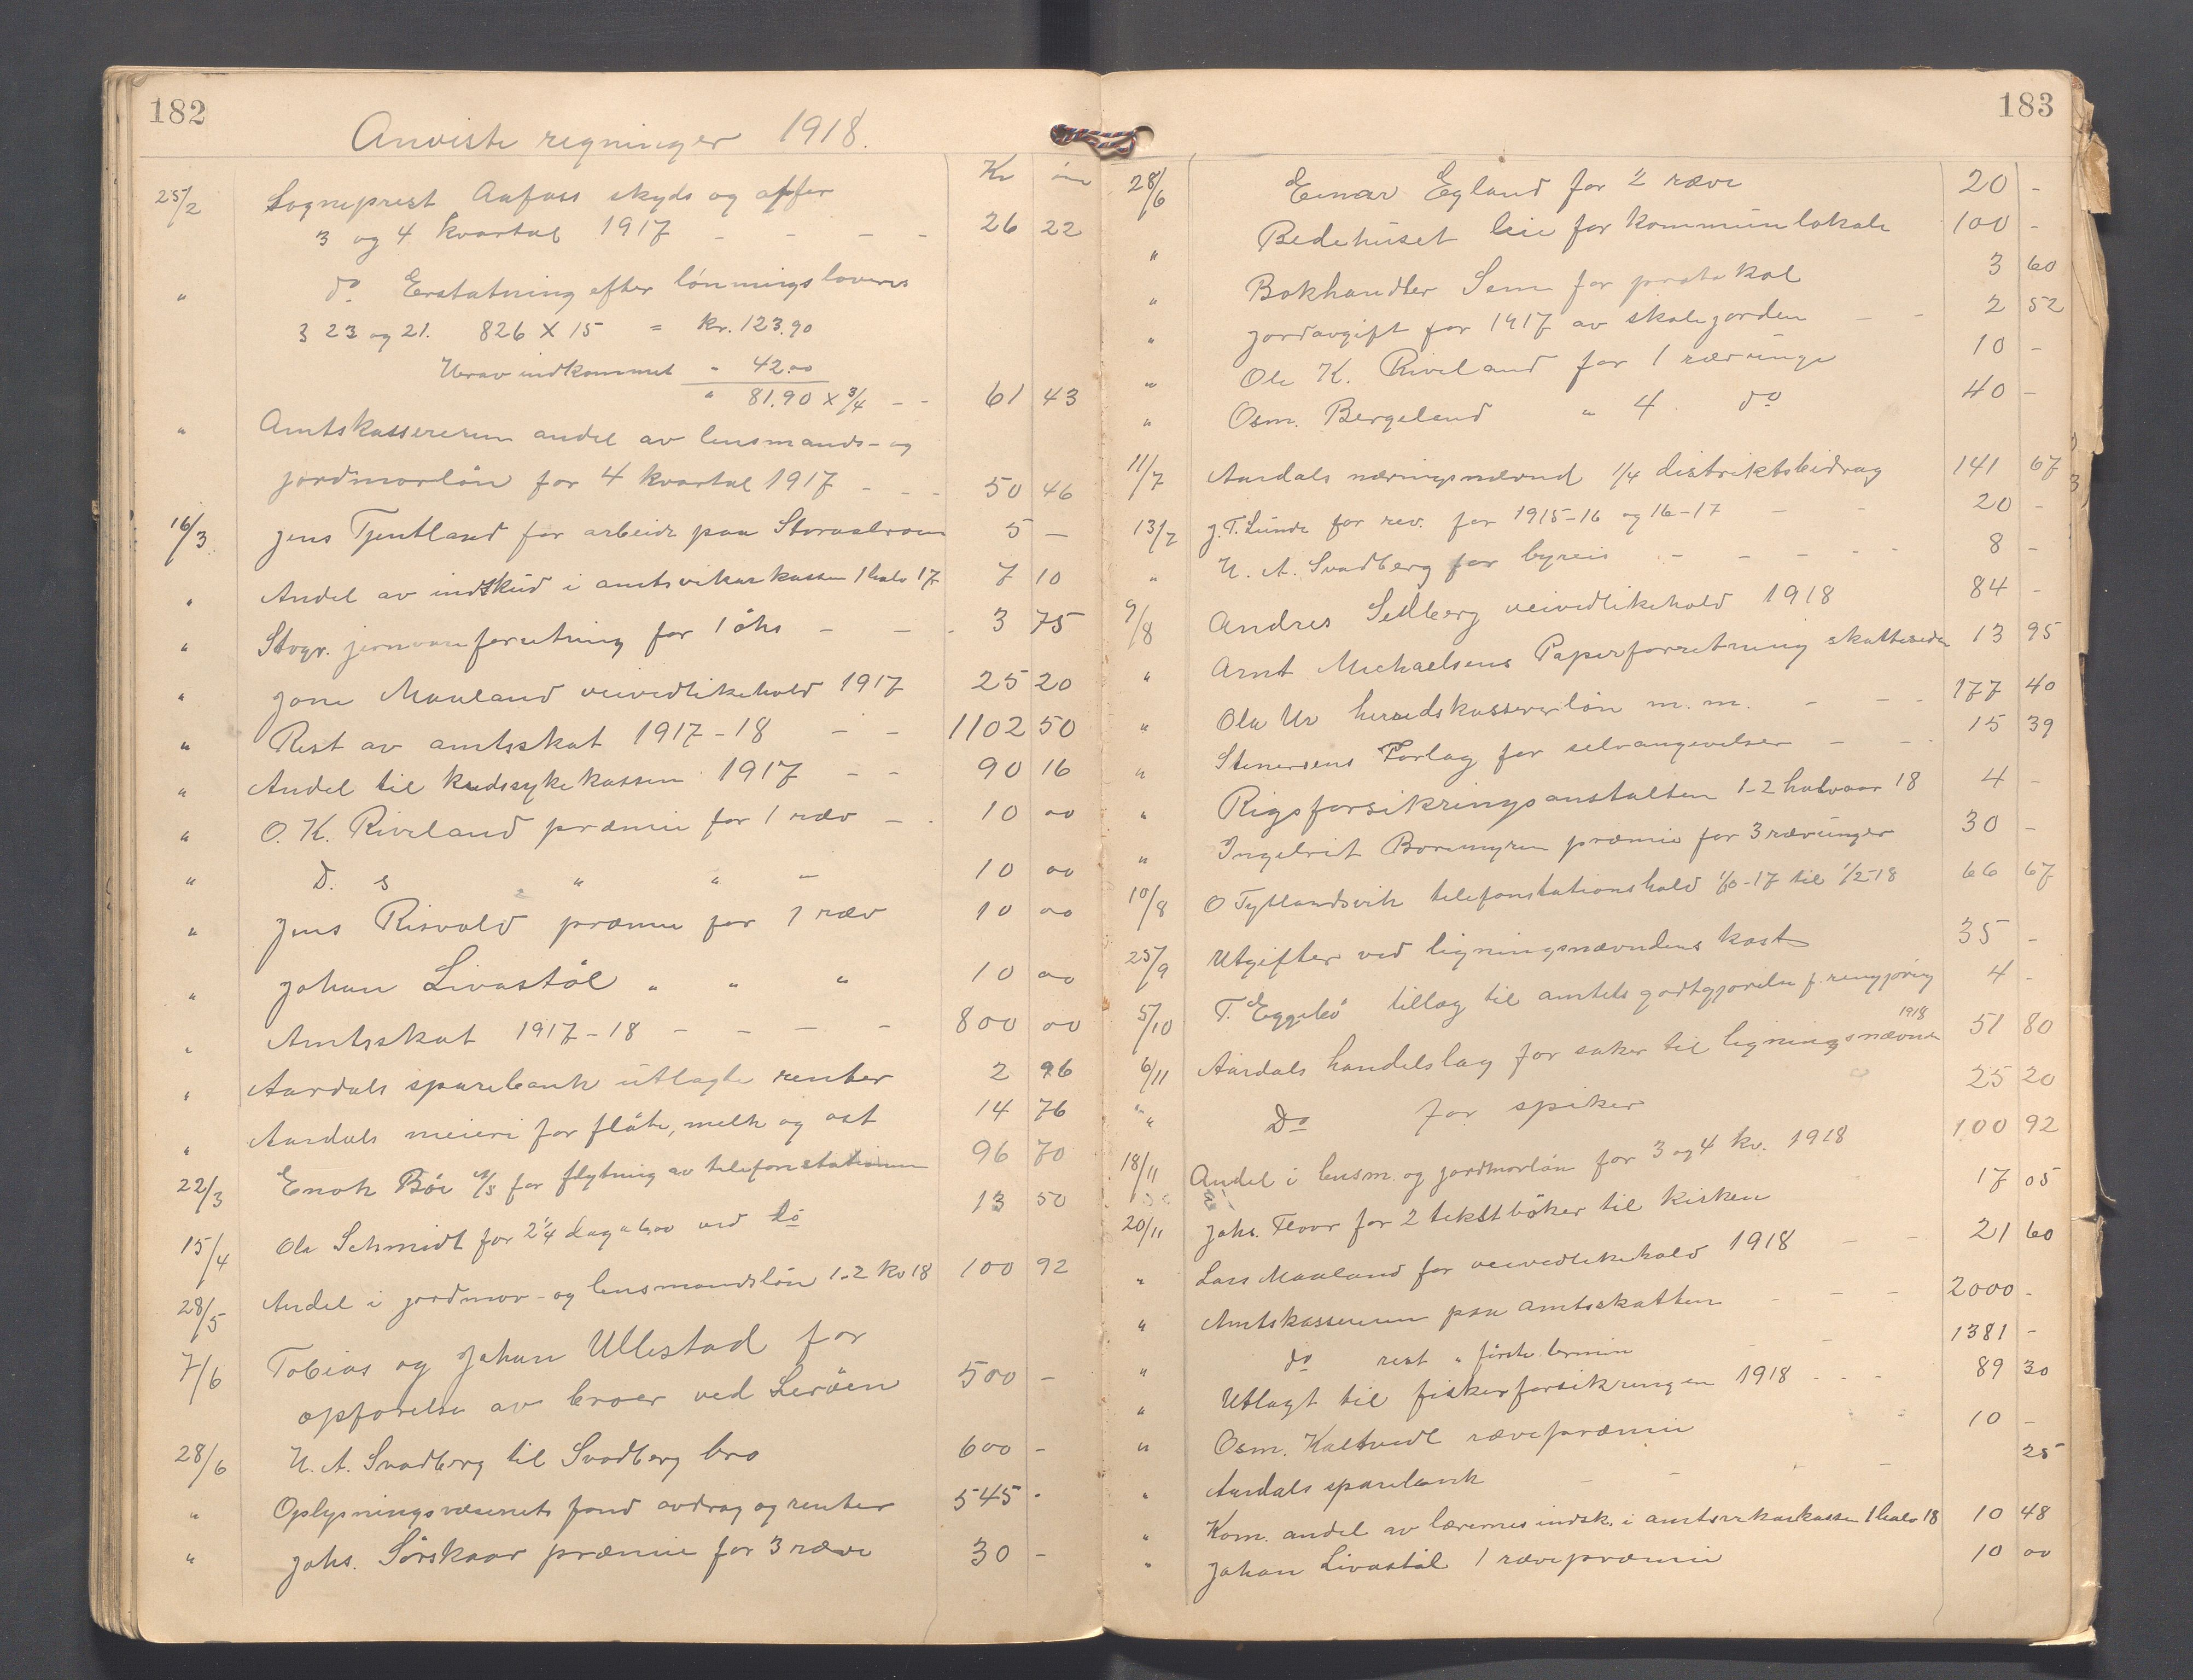 182
Anviste regninger 1918.
Kr øre
25/2 Sogneprest Aafoss skyds og offer
3 og 4 kvartal 1917 - - - - 26 22
" do Erstatning efter lønningslovens
§ 23 og 21. 826 X 15 = kr. 123.90
Herav indkommet " 42.00
" 81.90 X 3/4 - - 61 43
" Amtskassereren andel av lensmands- og
jordmorløn for 4 kvartal 1917 - - - 50 46
16/3 Jens Tjentland for arbeide paa 5 -
" Andel av indskud i amtsvikarkassen 1 halv 17 7 10
" Stvgr. jernvareforretning for 1 øks - - - 3 75
" Jone Maaland veivedlikehold 1917 25 20
" Rest av amtsskat 1917-18 - - 1102 50
" Andel til kredssykekassen 1917 - - 90 16
" O. K. Riveland præmie for 1 ræv - - 10 00
" D. s " " - 10 00
" Jens Risvold præmie for 1 ræv 10 00
" Johan Livastøl " " " 10 00
" Amtsskat 1917-18 - - - - 800 00
" Aardals sparebank utlagte renter 2 96
" Aardals meieri for fløte, melk og ost 14 76
22/3 Enok Bøe for flytning av telefonstationen 96 70
15/4 Ole Schmidt for 2 1/4 dag a 6,00 ved do 13 50
28/5 Andel i jordmor- og lensmandsløn 1-2 kv 18 100 92
7/6 Tobias og Johan Ullestad for
opførelse av broer ved Lerøen 500 -
28/6 N. A. Svadberg til Svadberg bro 600 -
" Oplysningsvæsenets fond avdrag og renter 545 -
" Johs. Sørskaar præmie for 3 ræve 30 -
183
28/6 Einar Egland for 2 ræve 20 -
" Bedehuset leie for kommunlokale 100 -
" Bokhandler Sem for protokol 3 60
" Jordavgift for 1917 av skolejorden - - 2 52
" Ole K. Riveland for 1 rævunge 10 -
" Osm. Bergeland " 4 do 40 -
11/7 Aardals næringsnævnd 1/4 distriktsbidrag 141 67
13/7 J. T. Lunde for rev. for 1915-16 og 16-17 - - 20 -
" N. A. Svadberg for byreis - - - - - 8 -
9/8 Andres Sedberg veivedlikehold 1918 84 -
" Arnt Michaelsens Papirforretning skattesedn 13 95
" Ola Ur herredskassererløn m. m. - - - 177 40
" Stenersens Forlag for selvangivelser - - 15 39
" Rigsforsikringsanstalten 1-2 halvaar 18 4 -
" Ingebrit Boremyren præmie for 3 rævunger 30 -
10/8 O Tytlandsvik telefonstationshold til 1/2-18 66 67
25/9 Utgifter ved ligningsnævndens kost 35 -
5/10 T. Eggebø tillæg til amtets godtgjørelse f. rengjøring 4 -
6/11 Aardals handelslag for saker til ligningsnævnd 1918 51 80
" Do for spiker 25 20
18/11 Andel i lensm. og jordmorløn for 3 og 4 kv. 1918 100 92
20/11 Johs. Floor for 2 tekstbøker til kirken 17 05
" Lars Maaland for veivedlikehold 1918 - - 21 60
" Amtskassereren paa amtsskatten - - - 2000 -
" do rest " første termin - 1381 -
" Utlagt til fiskerforsikringen 1918 - - - 89 30
" Osm. Kaltvedt rævepræmie 10 -
" Aardals sparebank - - - - 25
" Kom. andel av lærernes indsk. i amtsvikarkassen 1 halv 18 10 48
" Johan Livastøl 1 rævepræmie 10 00